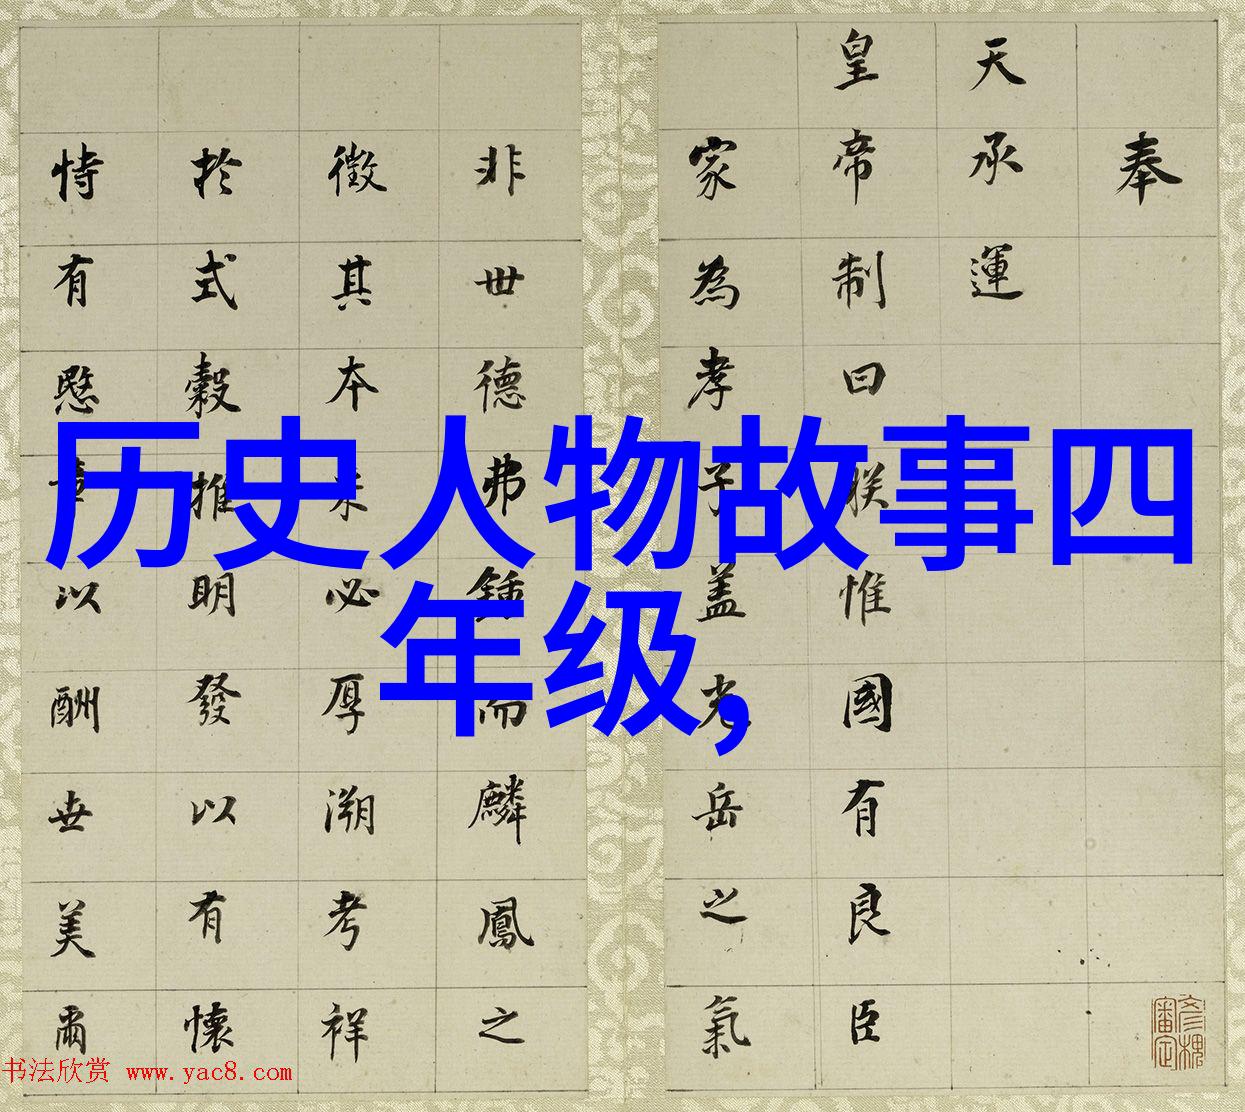 历史人物故事四
年级,
奉
天承運
皇帝制曰朕惟國有良臣
家為孝子蓋光岳之氣
非世德弗鍾而麟鳳之
徵其本末必厚溯考祥
於式穀推明發以有懷
恃有愍章以酬世美爾
书法欣赏 www.yac8.com